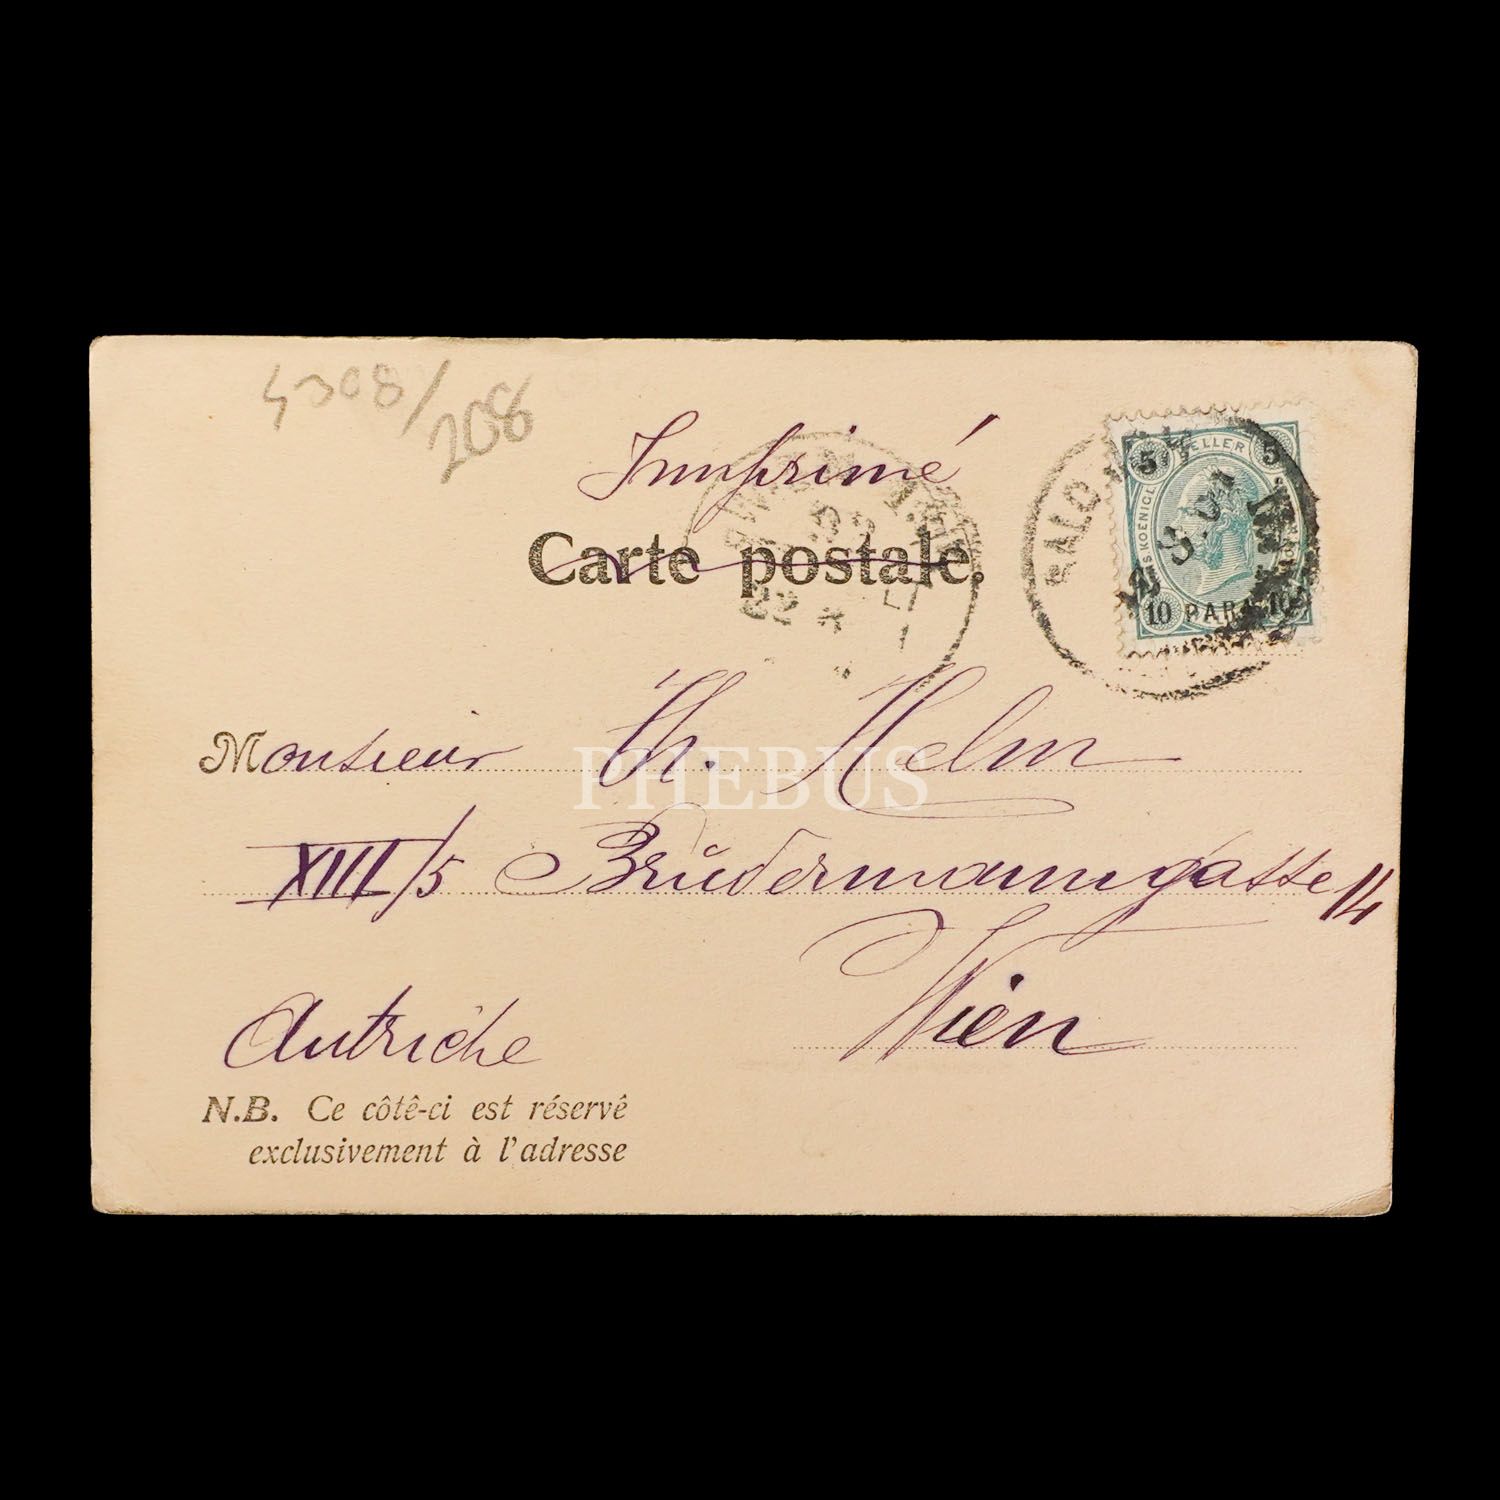 4308/208
Imprimé
Carte postale.
5 HELLER 5
10 PARA 10
Monsieur Th. Helm
PHEBUS
XIII/5 Brŭdermanngasse 14
Wien
Autriche
N.B. Ce côté-ci est réservé
exclusivement à l'adresse